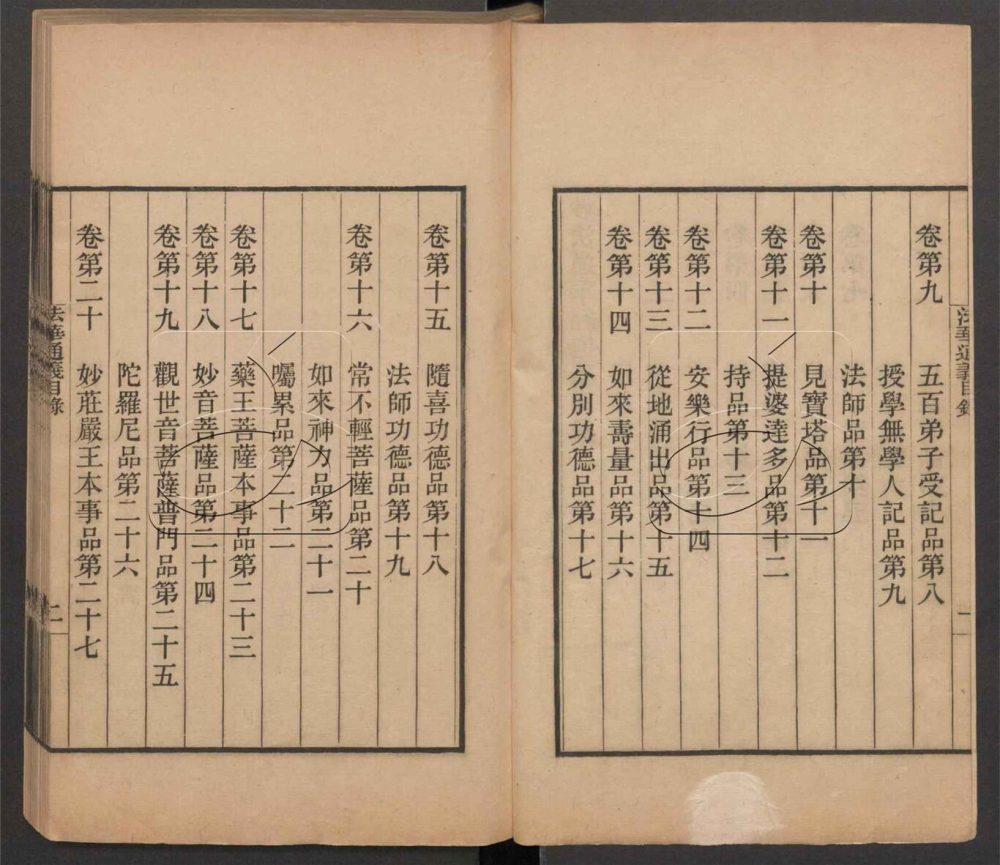 卷第九　五百弟子受記品第八
授學無學人記品第九
法師品第十
卷第十　見寶塔品第十一
卷第十一　提婆達多品第十二
持品第十三
卷第十二　安樂行品第十四
卷第十三　從地涌出品第十五
卷第十四　如來壽量品第十六
分別功德品第十七
法華通義目錄　一
卷第十五　隨喜功德品第十八
法師功德品第十九
卷第十六　常不輕菩薩品第二十
如來神力品第二十一
囑累品第二十二
卷第十七　藥王菩薩本事品第二十三
卷第十八　妙音菩薩品第二十四
卷第十九　觀世音菩薩普門品第二十五
陀羅尼品第二十六
卷第二十　妙莊嚴王本事品第二十七
法華通義目錄　二